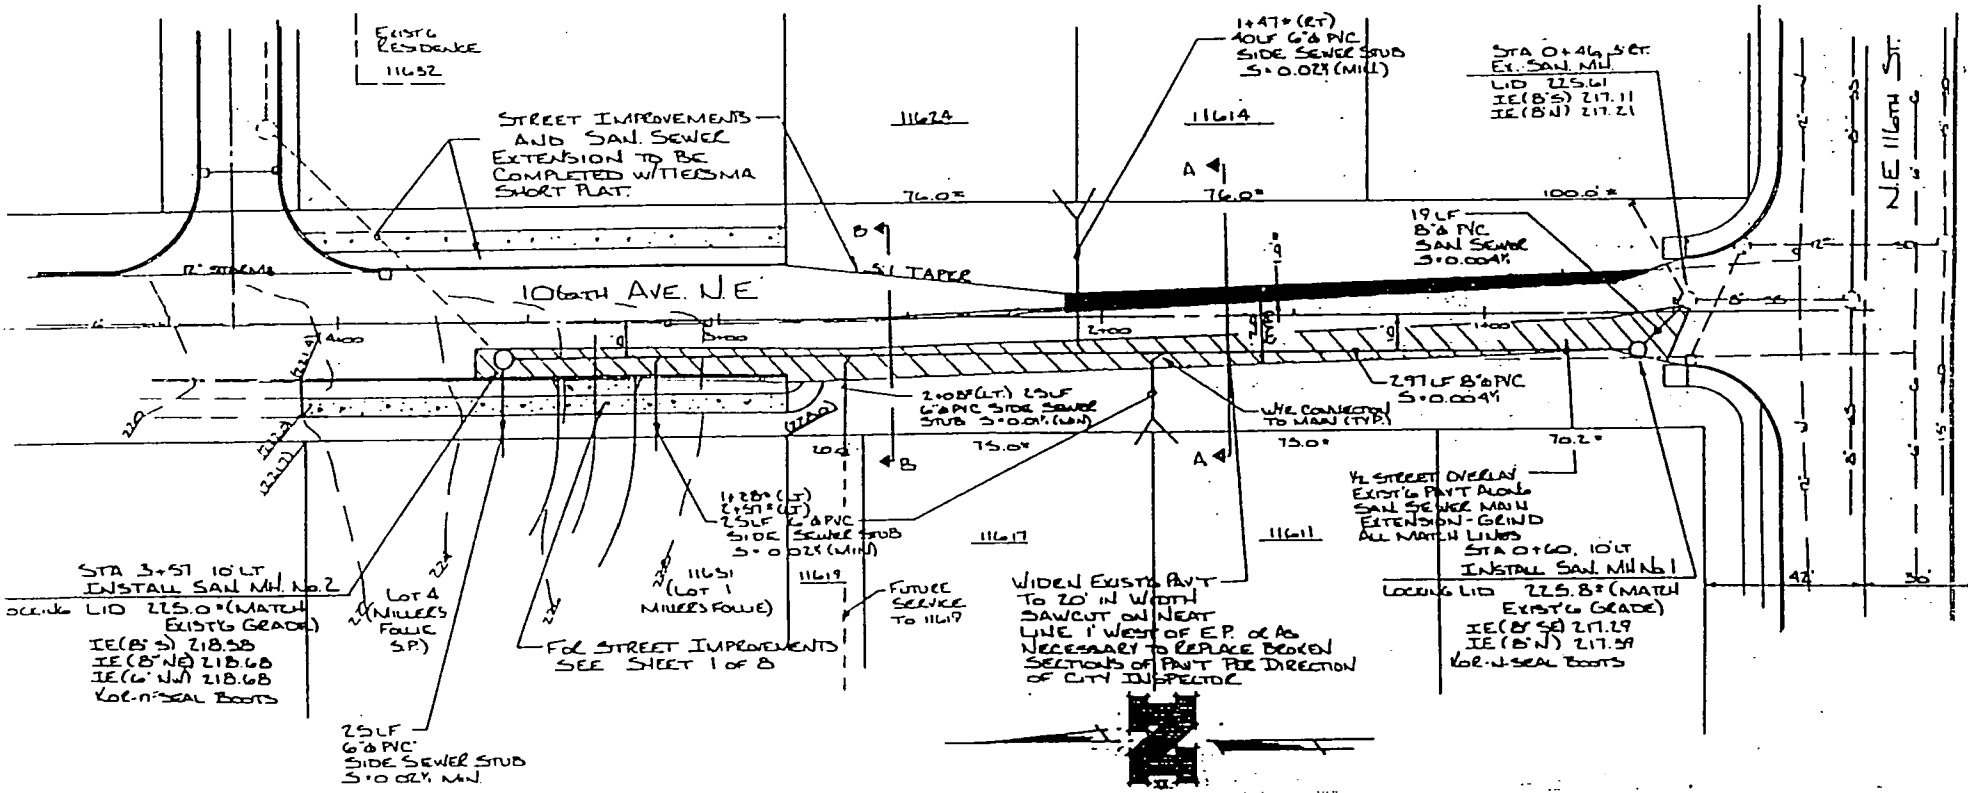 EXIST'G
RESIDENCE
11632
STREET IMPROVEMENTS
AND SAN. SEWER
EXTENSION TO BE
COMPLETED W/TIERSMA
SHORT PLAT.
1+47± (RT)
40LF 6"ø PVC
SIDE SEWER STUB
S=0.02% (MIN)
STA 0+46, 5'RT.
EX. SAN. MH.
LID 225.61
IE(8"S) 217.11
IE(8"N) 217.21
N.E. 116TH ST.
11624
11614
A
76.0±
76.0±
100.0'±
19 LF
8"ø PVC
SAN SEWER
S=0.004%
B
5:1 TAPER
12" STORM
106TH AVE. N.E
4+00
3+00
2+00
1+00
8" SS
297 LF 8"ø PVC
S=0.004%
2+08±(LT.) 25LF
6"ø PVC SIDE SEWER
STUB S=0.01% (MIN)
WYE CONNECTION
TO MAIN (TYP.)
20.0
75.0±
75.0±
70.2±
B
A
220
1+28± (LT)
2+57± (LT)
25LF 6"ø PVC
SIDE SEWER STUB
S=0.02% (MIN)
1/2 STREET OVERLAY
EXIST'G PAV'T ALONG
SAN SEWER MAIN
EXTENSION-GRIND
ALL MATCH LINES
11617
11611
STA 0+60, 10'LT
INSTALL SAN. MH No 1
LOCKING LID 225.8± (MATCH
EXIST'G GRADE)
IE(8" SE) 217.29
IE(8"N) 217.39
KOR-N-SEAL BOOTS
42'
30'
STA 3+57 10'LT
INSTALL SAN. MH. No. 2
LID 225.0± (MATCH
EXIST'G GRADE)
IE(8"S) 218.58
IE(8"NE) 218.68
IE(6"NW) 218.68
KOR-N-SEAL BOOTS
LOT 4
(MILLERS
FOLLIE
S.P.)
224
226
11631
(LOT 1
MILLERS FOLLIE)
11619
FUTURE
SERVICE
TO 11619
FOR STREET IMPROVEMENTS
SEE SHEET 1 OF 8
WIDEN EXIST'G PAV'T
TO 20' IN WIDTH
SAWCUT ON NEAT
LINE 1' WEST OF E.P. OR AS
NECESSARY TO REPLACE BROKEN
SECTIONS OF PAV'T PER DIRECTION
OF CITY INSPECTOR
25LF
6"ø PVC
SIDE SEWER STUB
S=0.02% MIN.
N